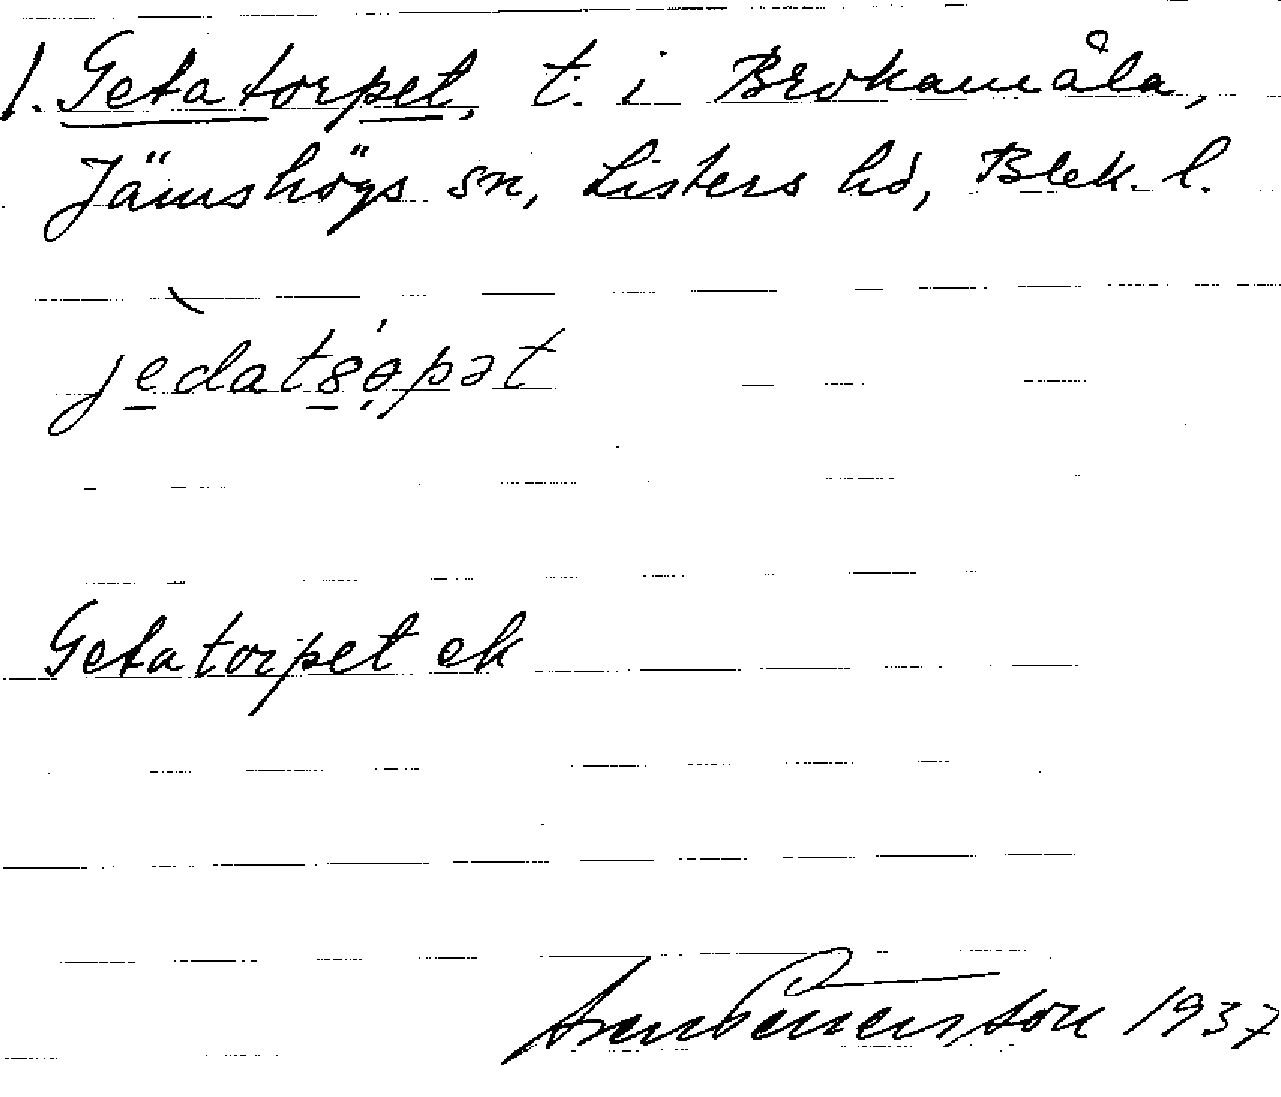 1. Getatorpet, t. i Brokamåla,
Jämshögs sn, Listers hd, Blek. l.
Getatorpet ek
1937